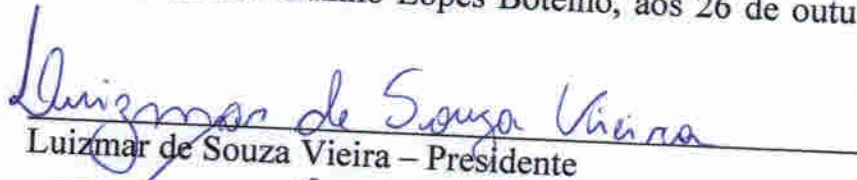 Lopes Botelho, aos 26 de outu
Luizmar de Souza Vieira
Luizmar de Souza Vieira – Presidente